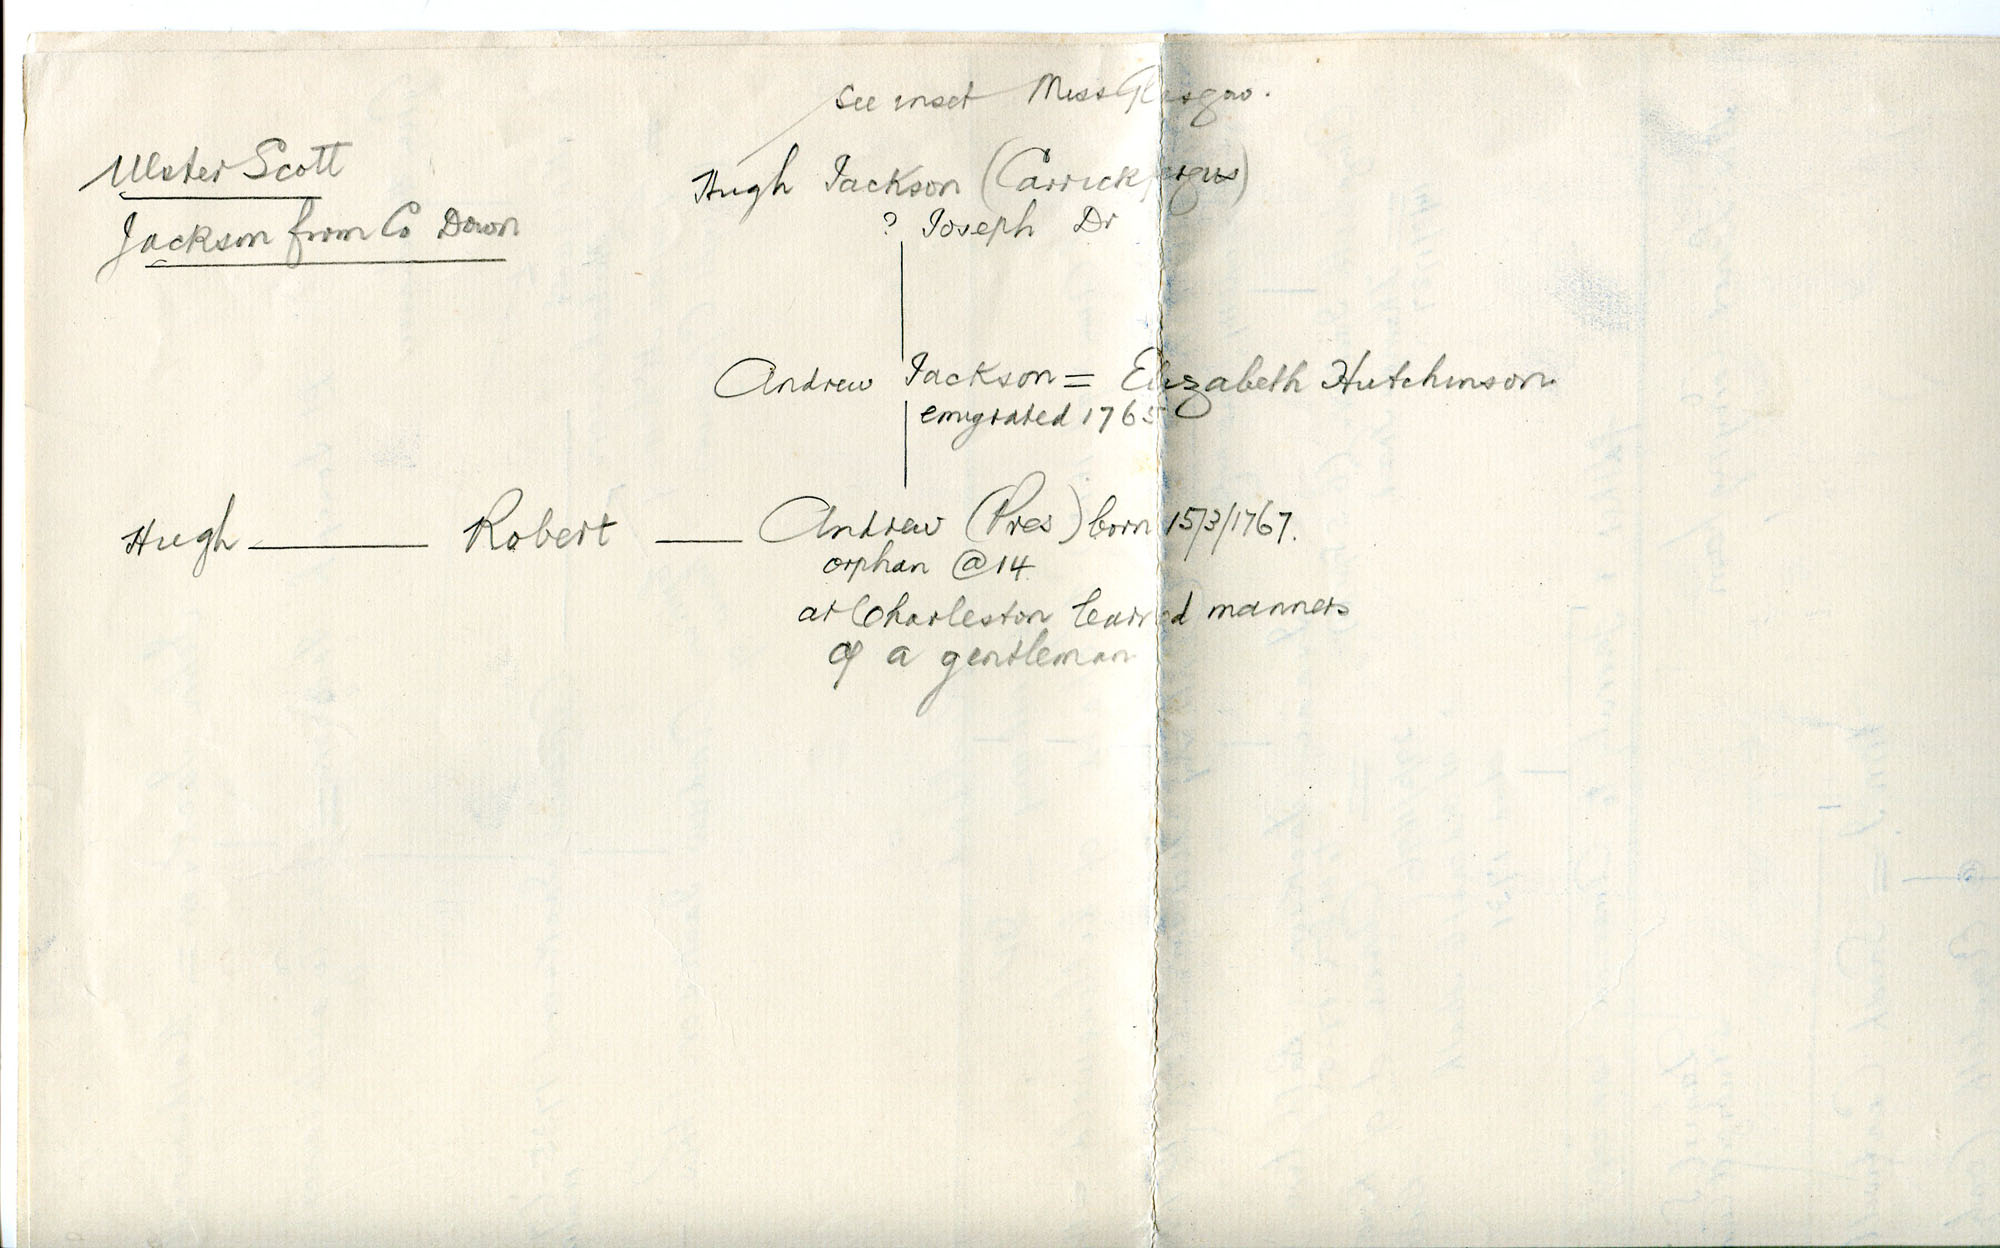 see inset Miss Glasgow.
Ulster Scott
Jackson from Co Down
Hugh Jackson (Carrickfergus)
? Joseph Dr
Andrew Jackson = Elizabeth Hutchinson.
emigrated 1765
Hugh — Robert — Andrew (Pres) born 15/3/1767.
orphan @ 14
at Charleston learned manners
of a gentleman